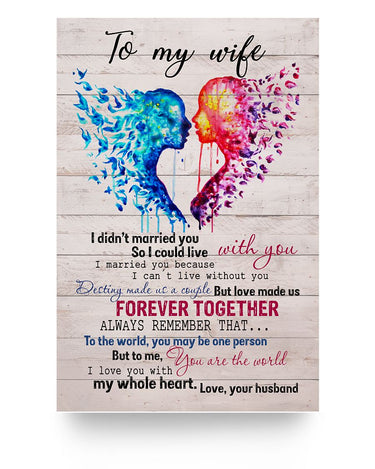 To my wife
I didn't married you
So I could live with you
I married you because
I can't live without you
Destiny made us a couple But love made us
FOREVER TOGETHER
ALWAYS REMEMBER THAT...
To the world, you may be one person
But to me, You are the world
I love you with
my whole heart. Love, your husband